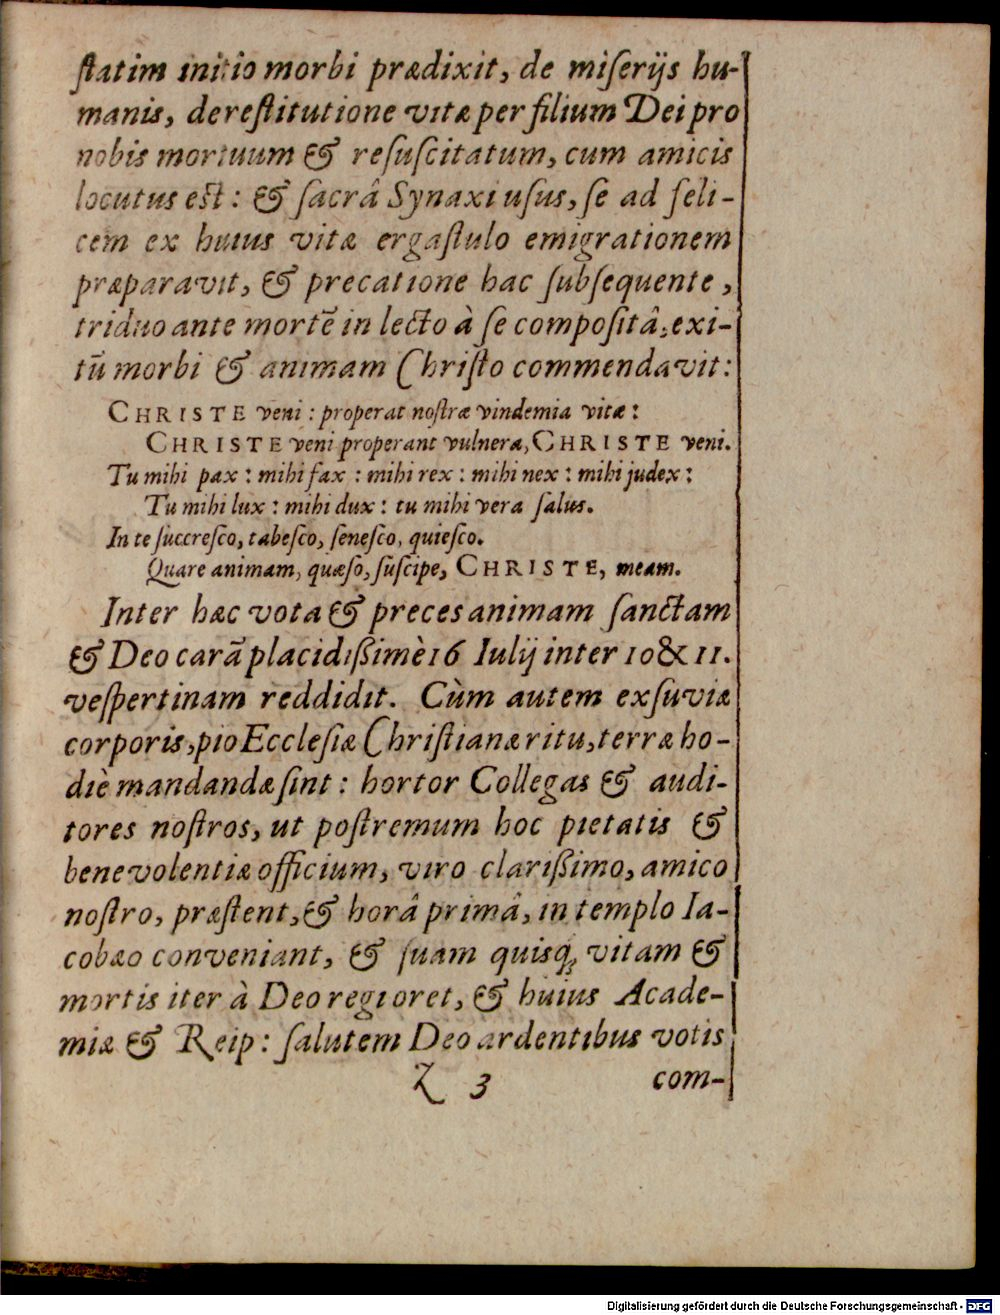 ſtatim initio morbi prædixit, de miſerijs hu-
manis, de reſtitutione vitæ per filium Dei pro
nobis mortuum & reſuſcitatum, cum amicis
locutus eſt: & ſacrâ Synaxi uſus, ſe ad feli-
cem ex huius vitæ ergaſtulo emigrationem
præparavit, & precatione hac ſubſequente,
triduo ante mortē in lecto à ſe compoſitâ, exi-
tū morbi & animam Chriſto commendavit:
CHRISTE veni: properat noſtræ vindemia vitæ:
CHRISTE veni properant vulnera, CHRISTE veni.
Tu mihi pax: mihi fax: mihi rex: mihi nex: mihi judex:
Tu mihi lux: mihi dux: tu mihi vera ſalus.
In te ſuccreſco, tabeſco, ſeneſco, quieſco.
Quare animam, quæſo, ſuſcipe, CHRISTE, meam.
Inter hæc vota & preces animam ſanctam
& Deo carā placidißimè 16 Iulij inter 10 & 11.
veſpertinam reddidit. Cùm autem exſuviæ
corporis, pio Eccleſiæ Chriſtianæ ritu, terræ ho-
diè mandandæ ſint: hortor Collegas & audi-
tores noſtros, ut poſtremum hoc pietatis &
benevolentiæ officium, viro clarißimo, amico
noſtro, præſtent, & horâ primâ, in templo Ia-
cobæo conveniant, & ſuam quisq; vitam &
mortis iter à Deo regi oret, & huius Acade-
miæ & Reip: ſalutem Deo ardentibus votis
Z 3 com-
Digitalisierung gefördert durch die Deutsche Forschungsgemeinschaft - DFG